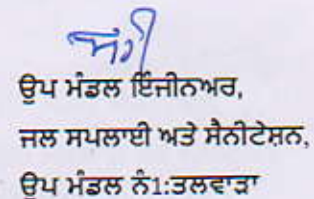 ਉਪ ਮੰਡਲ ਇੰਜੀਨਅਰ,
ਜਲ ਸਪਲਾਈ ਅਤੇ ਸੈਨੀਟੇਸ਼ਨ,
ਉਪ ਮੰਡਲ ਨੰ1:ਤਲਵਾੜਾ